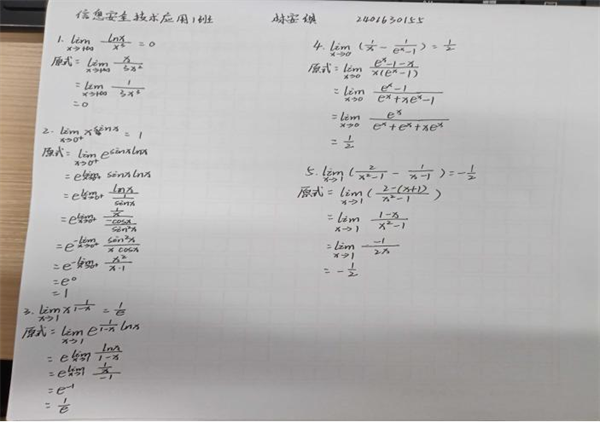 信息安全技术应用1班 2401630155
1. lim x→+∞ lnx/x³ = 0
原式 = lim x→+∞ (1/x)/3x²
= lim x→+∞ 1/3x³
= 0
2. lim x→0⁺ x^sinx = 1
原式 = lim x→0⁺ e^(sinx lnx)
= e^(lim x→0⁺ sinx lnx)
= e^(lim x→0⁺ lnx/(1/sinx))
= e^(lim x→0⁺ (1/x)/(-cosx/sin²x))
= e^(-lim x→0⁺ sin²x/(x cosx))
= e^(-lim x→0⁺ x²/(x·1))
= e⁰
= 1
3. lim x→1 x^(1/(1-x)) = 1/e
原式 = lim x→1 e^(1/(1-x) lnx)
= e^(lim x→1 lnx/(1-x))
= e^(lim x→1 (1/x)/(-1))
= e⁻¹
= 1/e
4. lim x→0 (1/x - 1/(eˣ-1)) = 1/2
原式 = lim x→0 (eˣ-1-x)/(x(eˣ-1))
= lim x→0 (eˣ-1)/(eˣ+xeˣ-1)
= lim x→0 eˣ/(eˣ+eˣ+xeˣ)
= 1/2
5. lim x→1 (2/(x²-1) - 1/(x-1)) = -1/2
原式 = lim x→1 ((2-(x+1))/(x²-1))
= lim x→1 (1-x)/(x²-1)
= lim x→1 -1/2x
= -1/2